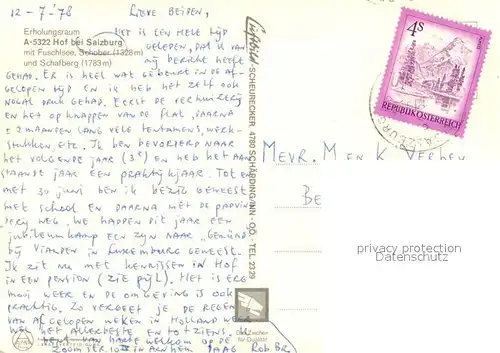 12-7-'78
LIEVE BEIDEN,
Erholungsraum
A-5322 Hof bei Salzburg
mit Fuschlsee, Schober (1328 m)
und Schafberg (1783 m)
HET IS EEN HELE TIJD
GELEDEN, DAT IK VAN
MIJ BERICHT HEEFT
GEHAD. ER IS HEEL WAT GEBEURD IN DE AF-
GELOPEN TIJD EN IK HEB HET ZELF OOK
NOGAL DRUK GEHAD. EERST DE VERHUIZERIJ
EN HET OPKNAPPEN VAN DE FLAT, DAARNA
± 2 MAANDEN LANG VELE TENTAMENS, WERK-
STUKKEN ETC. IK BEN BEVORDERD NAAR
HET VOLGENDE JAAR (3e) EN HEB HET AAN
STAANDE JAAR EEN PRAKTIJKJAAR. TOT EN
MET 30 JUNI BEN IK BEZIG GEWEEST
MET SCHOOL EN DAARNA MET DE
WEG. WE HADDEN DIT JAAR EEN
JUBILEUMKAMP EN ZIJN NAAR GEMÜND
BIJ VIANDEN IN LUXEMBURG GEWEEST.
IK ZIT NU MET IN HOF
IN EEN PENSION (ZIE PIJL). HET IS ERG
MOOI WEER EN DE OMGEVING IS OOK
PRACHTIG. ZO VERGEET JE DE REGEN
VAN AFGELOPEN WEKEN IN HOLLAND WEER
WEL HET ALLERBESTE EN TOT ZIENS.
BENT VAN HARTE WELKOM OP DE
IN ARNHEM DAAG ROB BR
Luftbild SCHEURECKER 4780 SCHÄRDING/INN - OÖ - TEL. 2339
4S
REPUBLIK ÖSTERREICH
MEVR. M EN K VERHEY
BE
privacy protection
Datenschutz